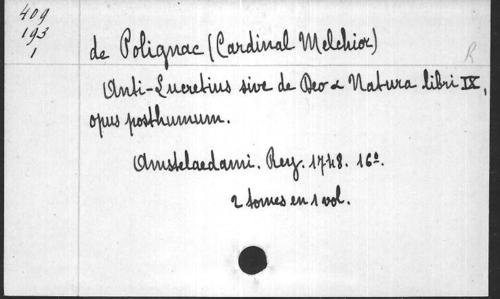 409
193
1
de Polignac (Cardinal Melchior)
R
Anti-Lucretius sive de Deo & Natura libri IX,
opus posthumum.
Amstelaedami. Rey. 1748. 16º.
2 tomes en 1 vol.